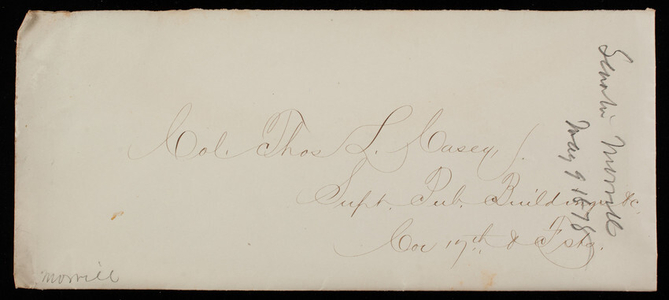 Col. Thos L. Casey,
Supt. Pub. Buildings &c.
Cor 17th & F sts.
Senator Morrill
May 9 1878
Morrill